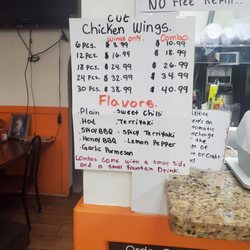 No Free Refill
CUT
Chicken Wings.
Wings only. Combo.
6 pcs. $8.99 $10.99
12 pcs. $16.99 $18.99
18 pcs. $24.99 $26.99
24 pcs. $32.99 $34.99
30 pcs. $38.99 $40.99
Flavors.
Plain Sweet Chili
Hot Terriyaki
Spicy BBQ Spicy Terriyaki
Honey BBQ Lemon Pepper
Garlic Parmesan
Combos come with a small side
and a small Fountain Drink.
Notice
Automatic
charge
or Credit
Order